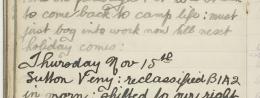 to come back to camp life: must
just bog into work now till next
holiday comes:
Thursday Nov 15th
Sutton Veny: reclassified B1A2
in morn: shifted to our right